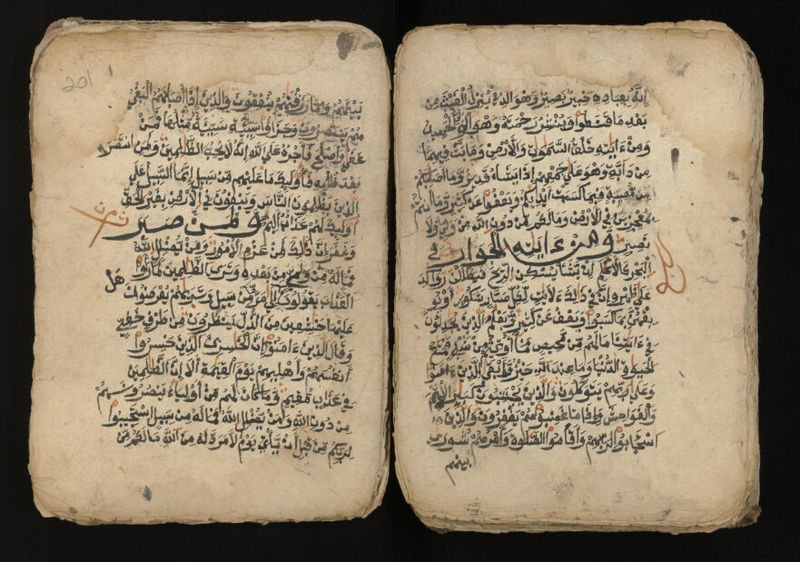 إنه بعباده خبير بصير وهو الذي ينزل الغيث من
بعد ما قنطوا وينشر رحمته وهو الولي الحميد
ومن ءايته خلق السموت والارض وما بث فيهما
من دابة وهو على جمعهم إذا يشاء قدير وما أصبكم
من مصيبة فبما كسبت أيديكم ويعفوا عن كثير وما أنتم
بمعجزين في الارض وما لكم من دون الله من ولي ولا
نصير ومن ءايته الجوار في
البحر كالاعلم إن يشأ يسكن الريح فيظللن رواكد
على ظهره إن في ذلك لأيت لكل صبار شكور أو يو
بقهن بما كسبوا ويعف عن كثير ويعلم الذين يجدلون
في ءايتنا ما لهم من محيص فما أوتيتم من شيء فمتع
الحيوة الدنيا وما عند الله خير وأبقى للذين ءامنوا
وعلى ربهم يتوكلون والذين يجتنبون كبئر الإثم
والفواحش وإذا ما غضبوا هم يغفرون والذين
استجابوا لربهم وأقاموا الصلوة وأمرهم شورى
بينهم
201
بينهم ومما رزقنهم ينفقون والذين إذا أصابهم البغي
هم ينتصرون وجزؤا سيئة سيئة مثلها فمن
عفا وأصلح فأجره على الله إنه لا يحب الظلمين ولمن انتصر
بعد ظلمه فأوليك ما عليهم من سبيل إنما السبيل على
الذين يظلمون الناس ويبغون في الارض بغير الحق
أوليك لهم عذاب أليم ولمن صبر
وغفر إن ذلك لمن عزم الامور ومن يضلل الله
فما له من ولي من بعده وترى الظلمين لما رأوا
العذاب يقولون هل إلى مرد من سبيل وتريهم يعرضون
عليها خشعين من الذل ينظرون من طرف خفي
وقال الذين ءامنوا إن الخسرين الذين خسروا
أنفسهم وأهليهم يوم القيمة ألا إن الظلمين
في عذاب مقيم وما كان لهم من أولياء ينصرونهم
من دون الله ومن يضلل الله فما له من سبيل استجيبوا
لربكم من قبل أن يأتي يوم لا مرد له من الله ما لكم من